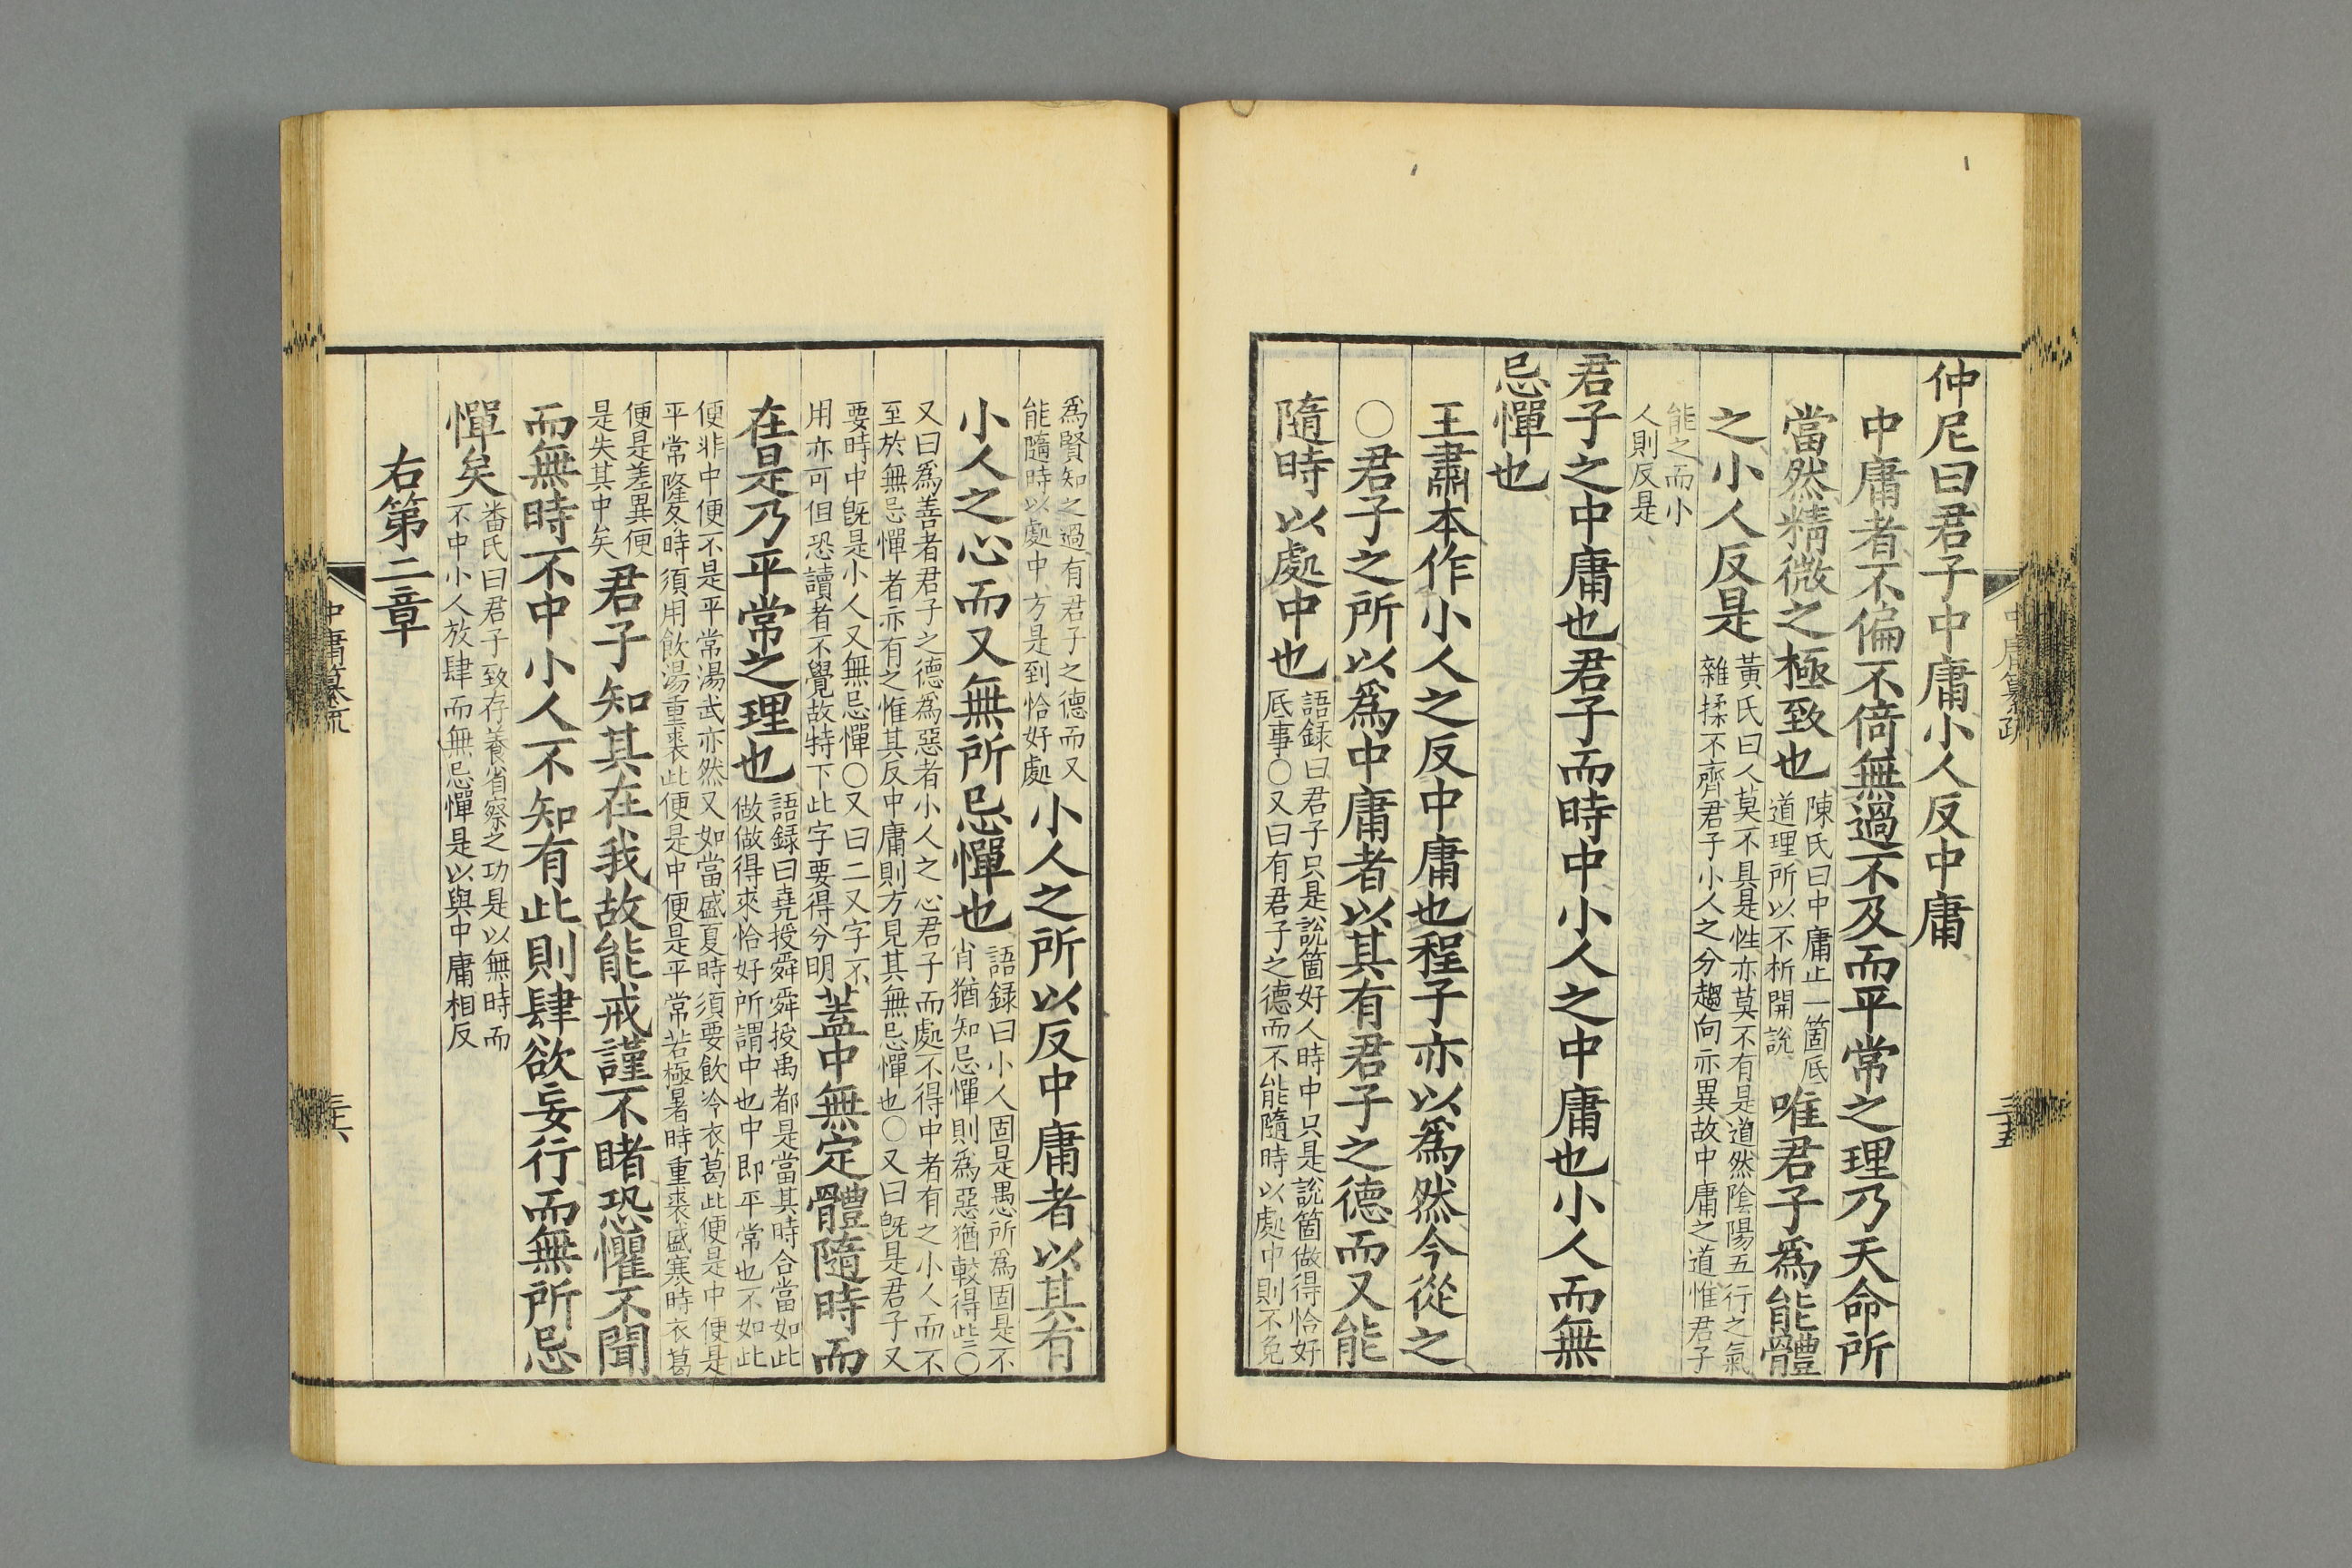 仲尼曰君子中庸小人反中庸
中庸者不偏不倚無過不及而平常之理乃天命所
當然精微之極致也
陳氏曰中庸止一箇底
道理所以不析開說
唯君子爲能體
之小人反是
黃氏曰人莫不具是性亦莫不有是道然陰陽五行之氣
雜揉不齊君子小人之分趨向亦異故中庸之道惟君子
能之而小
人則反是
君子之中庸也君子而時中小人之中庸也小人而無
忌憚也
王肅本作小人之反中庸也程子亦以爲然今從之
○君子之所以爲中庸者以其有君子之德而又能
隨時以處中也
語録曰君子只是說箇好人時中只是說箇做得恰好
底事○又曰有君子之德而不能隨時以處中則不免
中庸纂疏
三十五
爲賢知之過有君子之德而又
能隨時以處中方是到恰好處
小人之所以反中庸者以其有
小人之心而又無所忌憚也
語録曰小人固是愚所爲固是不
肖猶知忌憚則爲惡猶較得些○
又曰爲善者君子之德爲惡者小人之心君子而處不得中者有之小人而不
至於無忌憚者亦有之惟其反中庸則方見其無忌憚也○又曰旣是君子又
要時中旣是小人又無忌憚○又曰二又字不
用亦可但恐讀者不覺故特下此字要得分明
蓋中無定體隨時而
在是乃平常之理也
語録曰堯授舜舜授禹都是當其時合當如此
做做得來恰好所謂中也中即平常也不如此
便非中便不是平常湯武亦然又如當盛夏時須要飲冷衣葛此便是中便是
平常隆冬時須用飲湯重裘此便是中便是平常若極暑時重裘盛寒時衣葛
便是差異便
是失其中矣
君子知其在我故能戒謹不睹恐懼不聞
而無時不中小人不知有此則肆欲妄行而無所忌
憚矣
番氏曰君子致存養省察之功是以無時而
不中小人放肆而無忌憚是以與中庸相反
右第二章
中庸纂疏
三十六